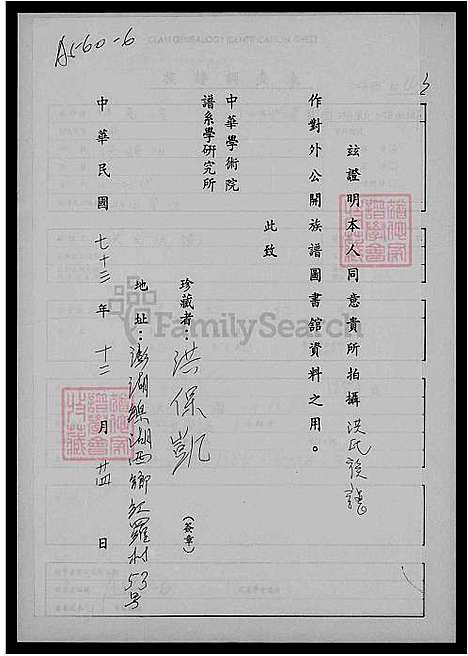 A5-60-6
茲證明本人同意貴所拍攝洪氏族譜
作對外公開族譜圖書館資料之用。
此致
中華學術院
譜系學研究所
珍藏者：洪保凱（簽章）
地址：澎湖縣湖西鄉紅羅村53号
中華民國七十三年十二月廿四日
FamilySearch